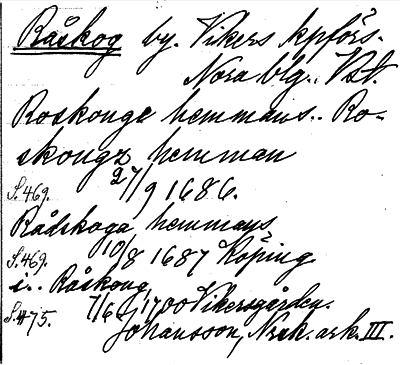 Råskog by. Vikers kpförs.
Nora blg., Vstl.
Roskonge hemmans.. Ro-
skongz hemman
S. 469. 27/9 1686.
Rådskoga hemmans
S. 469. 10/8 1687 Köping
i.. Råskong
S. 475. 7/6 1700 Vikersgården.
Johansson, Nrsk. ark. III.